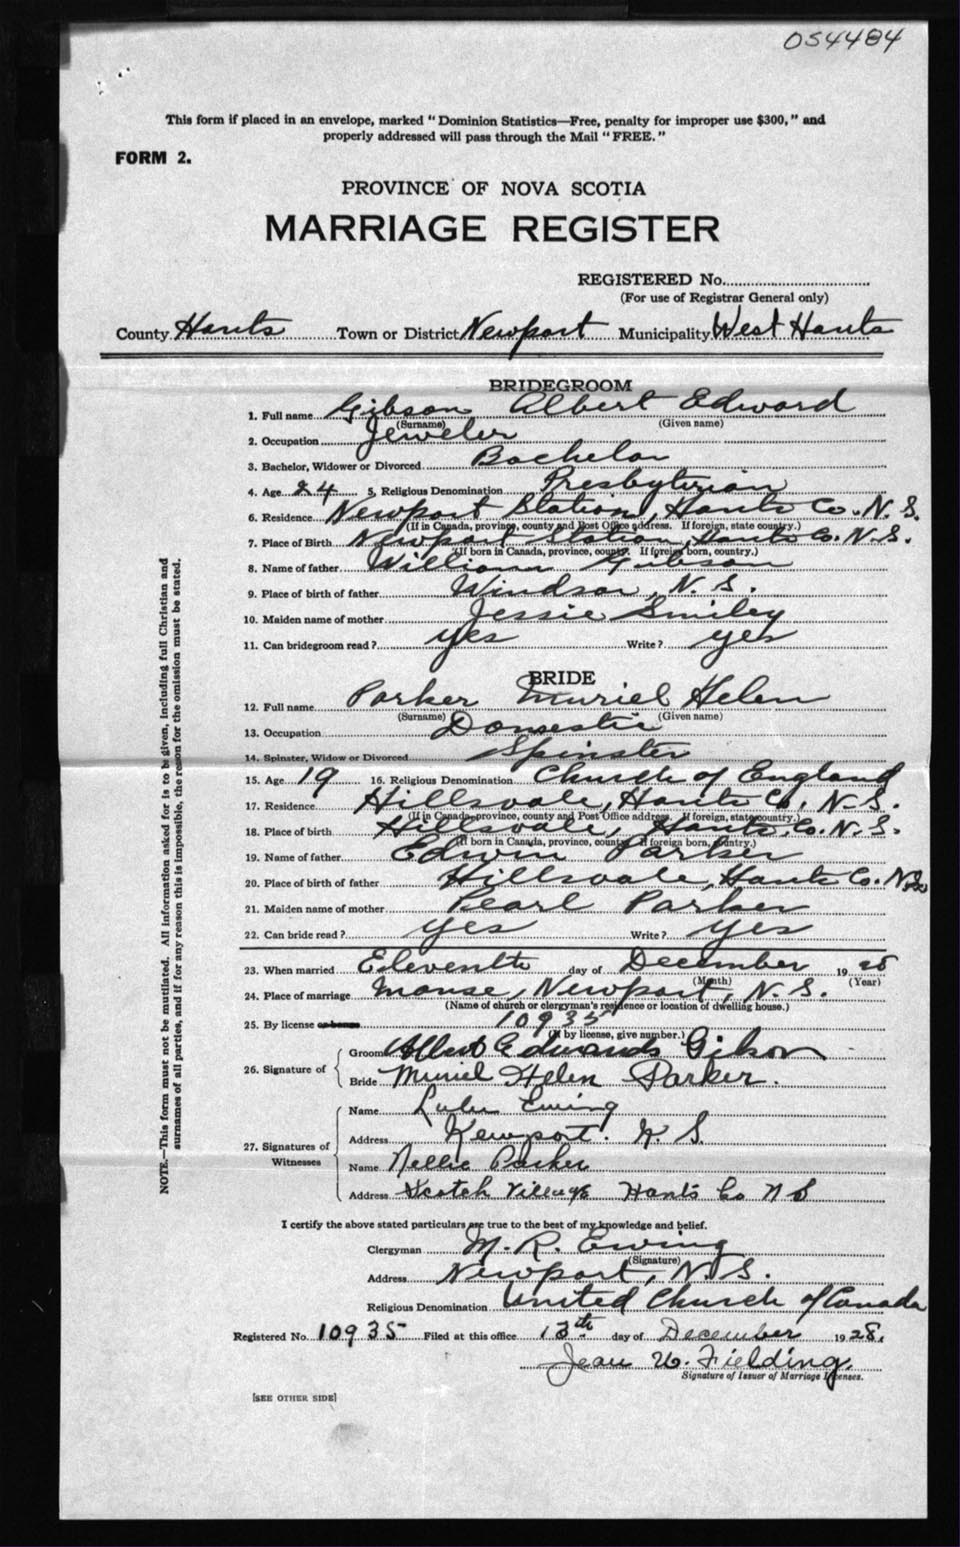 054484
This form if placed in an envelope, marked "Dominion Statistics—Free, penalty for improper use $300," and
properly addressed will pass through the Mail "FREE."
FORM 2.
PROVINCE OF NOVA SCOTIA
MARRIAGE REGISTER
REGISTERED No.
(For use of Registrar General only)
County Hants Town or District Newport Municipality West Hants
BRIDEGROOM
1. Full name Gibson Albert Edward
(Surname) (Given name)
2. Occupation Jeweler
3. Bachelor, Widower or Divorced Bachelor
4. Age 24 5. Religious Denomination Presbyterian
6. Residence Newport Station, Hants Co. N. S.
(If in Canada, province, county and Post Office address. If foreign, state country.)
7. Place of Birth Newport Station, Hants Co. N. S.
(If born in Canada, province, county. If foreign born, country.)
8. Name of father William Gibson
9. Place of birth of father Windsor, N. S.
10. Maiden name of mother Jessie Smiley
11. Can bridegroom read? yes Write? yes
BRIDE
12. Full name Parker Muriel Helen
(Surname) (Given name)
13. Occupation Domestic
14. Spinster, Widow or Divorced Spinster
15. Age 19 16. Religious Denomination Church of England
17. Residence Hillsvale, Hants Co, N. S.
(If in Canada, province, county and Post Office address. If foreign, state country.)
18. Place of birth Hillsvale, Hants, Co. N. S.
(If born in Canada, province, county. If foreign born, country.)
19. Name of father Edwin Parker
20. Place of birth of father Hillsvale, Hants Co. N.S.
21. Maiden name of mother Pearl Parker
22. Can bride read? yes Write? yes
23. When married Eleventh day of December 1928
(Month) (Year)
24. Place of marriage Manse, Newport, N. S.
(Name of church or clergyman's residence or location of dwelling house.)
25. By license or banns 10935
(If by license, give number.)
26. Signature of
Groom Albert Edwards Gibson
Bride Muriel Helen Parker.
27. Signatures of Witnesses
Name Lulu Ewing
Address Newport. N. S.
Name Nellie Parker
Address Scotch Village Hants Co N S
I certify the above stated particulars are true to the best of my knowledge and belief.
Clergyman M. R. Ewing
(Signature)
Address Newport, N. S.
Religious Denomination United Church of Canada
Registered No. 10935 Filed at this office 13th day of December 1928.
Jean W. Fielding.
Signature of Issuer of Marriage Licenses.
[SEE OTHER SIDE]
NOTE.—This form must not be mutilated. All information asked for is to be given, including full Christian and
surnames of all parties, and if for any reason this is impossible, the reason for the omission must be stated.